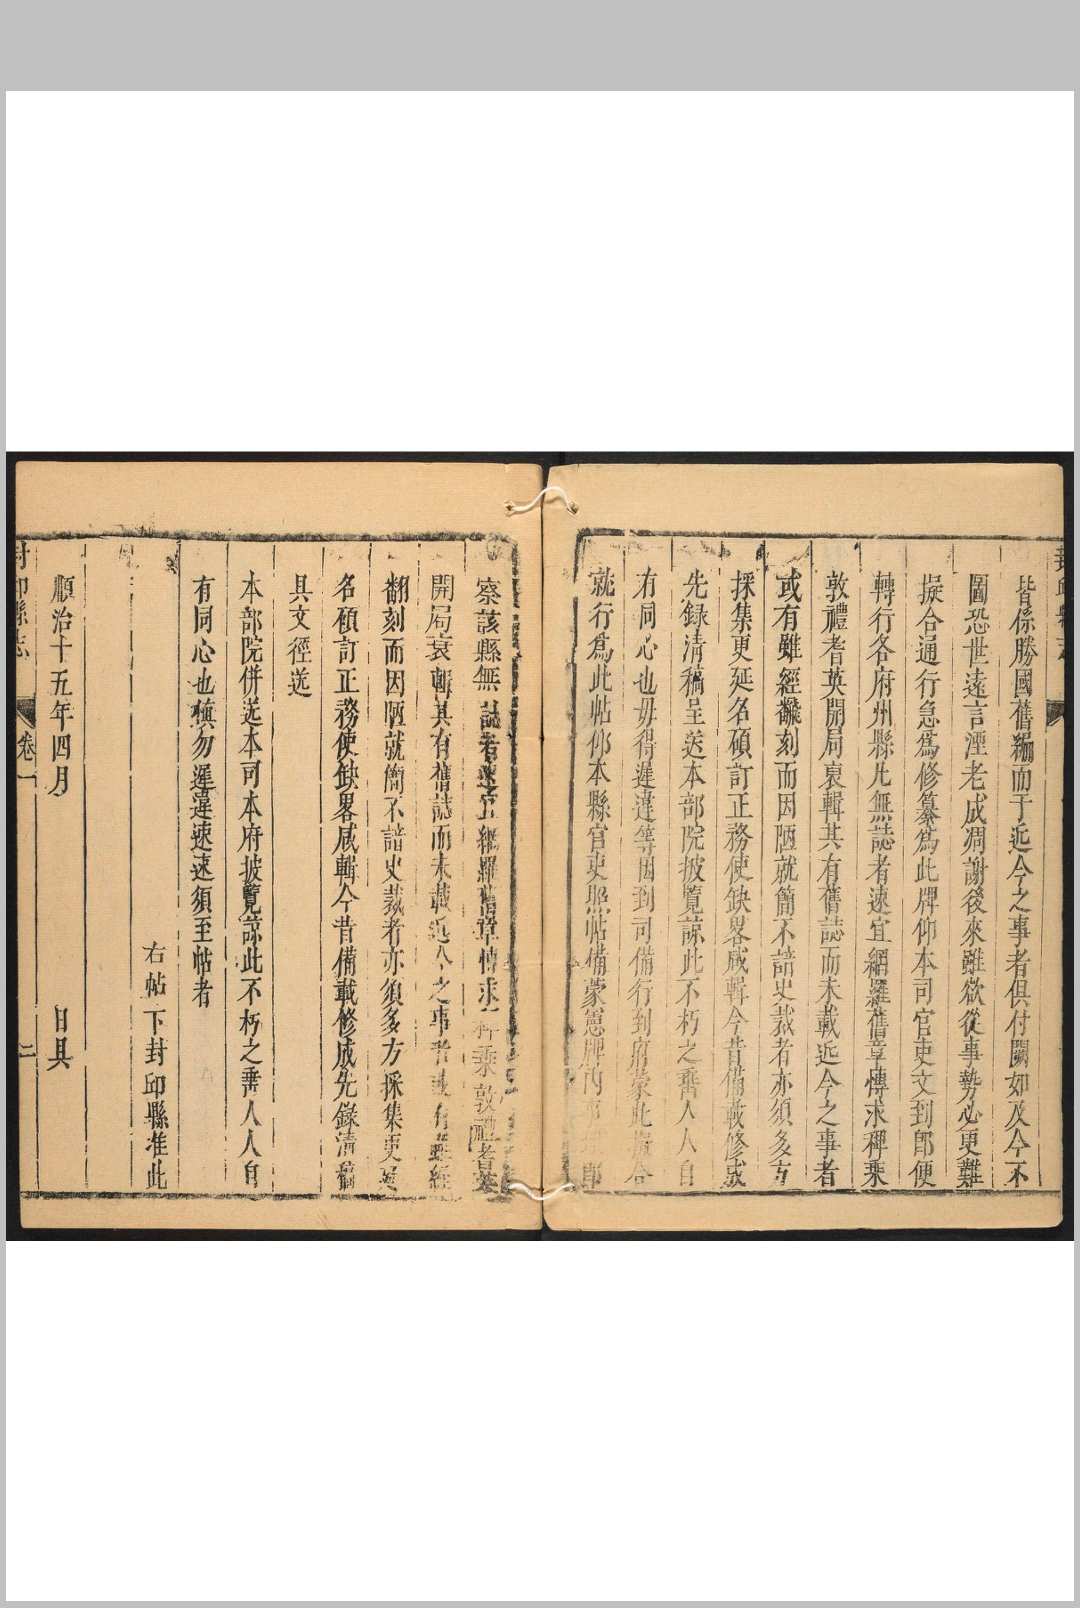 皆係勝國舊編而于近今之事者俱付闕如及今不
圖恐世遠言湮老成凋謝後來雖欲從事勢必更難
擬合通行急爲修纂爲此牌仰本司官吏文到即便
轉行各府州縣凡無誌者速宜網羅舊章慱求稗乗
敦禮耆英開局裒輯其有舊誌而未載近今之事者
或有雖經鐫刻而因陋就簡不諳史裁者亦須多方
採集更延名碩訂正務使缺畧咸輯今昔備載修成
先録清稿呈送本部院披覽諒此不朽之事人人自
有同心也毋得遲違等因到司備行到府蒙此擬合
就行爲此帖仰本縣官吏照帖備蒙憲牌內
察該縣無誌者速宜網羅舊章慱求稗乗敦禮耆英
開局裒輯其有舊誌而未載近今之事者或有雖經
翻刻而因陋就簡不諳史裁者亦須多方採集更延
名碩訂正務使缺畧咸輯今昔備載修成先錄清稿
具文徑送
本部院併送本司本府披覽諒此不朽之事人人自
有同心也慎勿遲違速速須至帖者
右帖下封邱縣准此
順治十五年四月 日具
封邱縣志 卷一 二